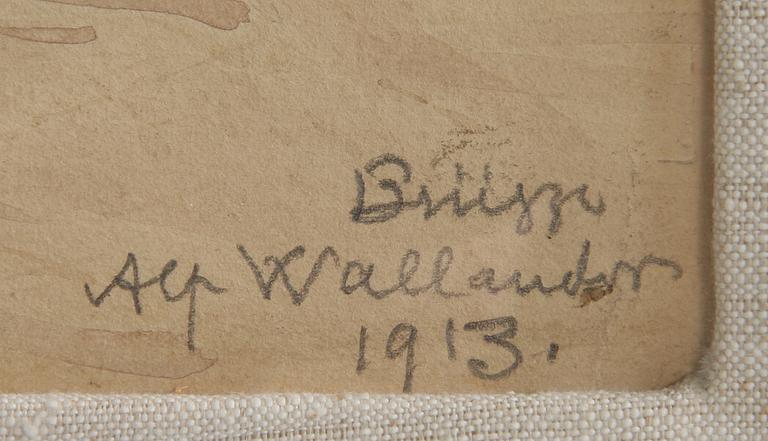 Brügge
Alf Wallander
1913.